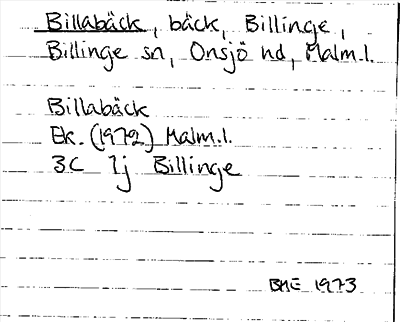 Billabäck, bäck, Billinge,
Billinge sn, Onsjö hd, Malm.l.
Billabäck
Ek. (1972) Malm.l.
3C 7j Billinge
BME 1973